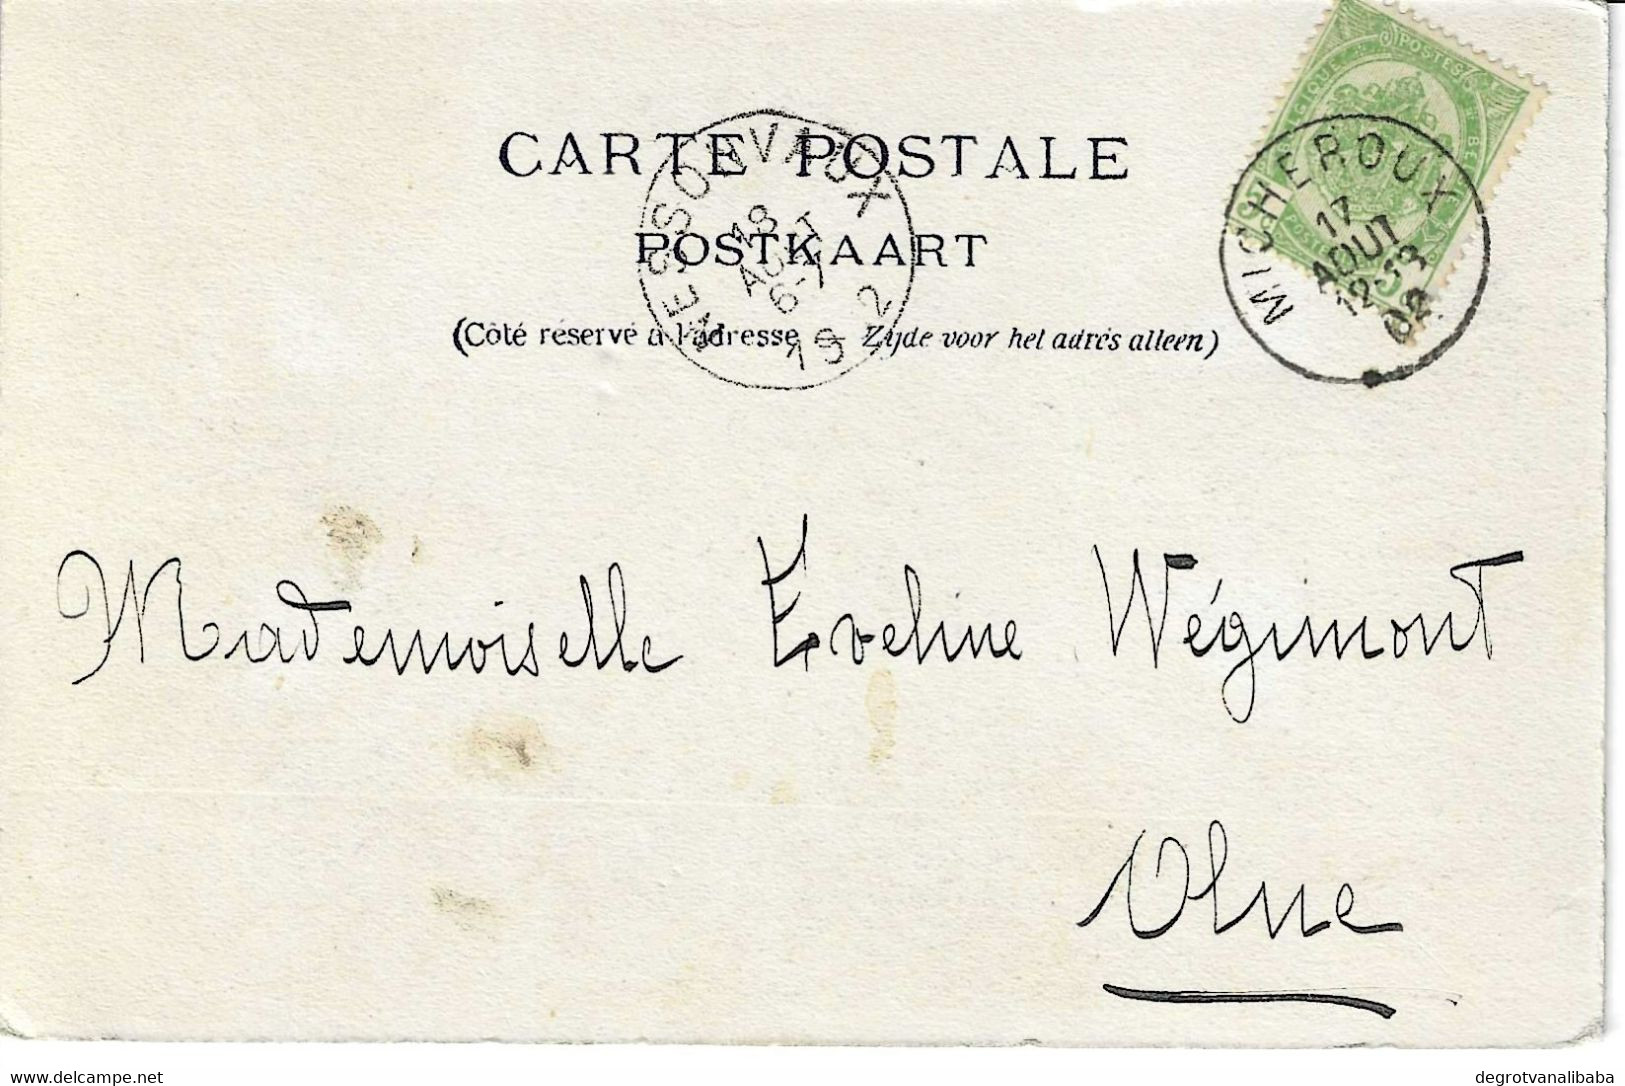 CARTE POSTALE
POSTKAART
(Côté réservé à l'adresse — Zijde voor het adres alleen)
NESSONVAUX
18
AOUT
6-7
1902
POSTES
BELGIQUE
MICHEROUX
17
AOUT
02
Mademoiselle Eveline Wégimont
Olne
www.delcampe.net
degrotvanalibaba